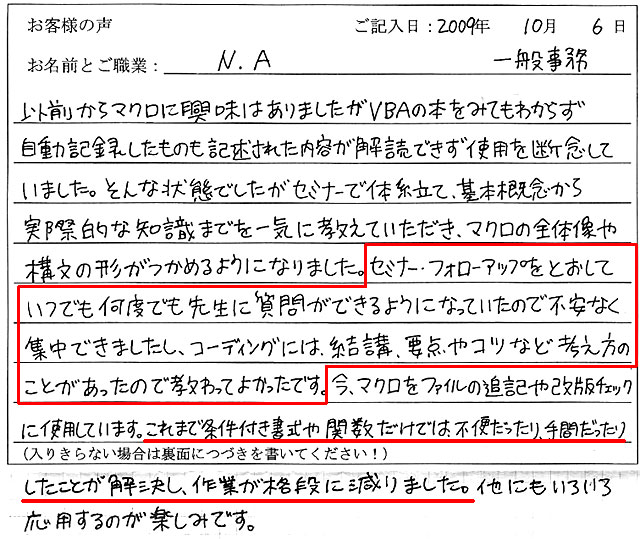 お客様の声 ご記入日:2009年 10月 6日
お名前とご職業: N.A 一般事務
以前からマクロに興味はありましたがVBAの本をみてもわからず
自動記録したものも記述された内容が解読できず使用を断念して
いました。そんな状態でしたがセミナーで体系立て、基本概念から
実際的な知識までを一気に教えていただき、マクロの全体像や
構文の形がつかめるようになりました。セミナー・フォローアップをとおして
いつでも何度でも先生に質問ができるようになっていたので不安なく
集中できましたし、コーディングには、結講、要点やコツなど考え方の
ことがあったので教わってよかったです。今、マクロをファイルの追記や改版チェック
に使用しています。これまで条件付き書式や関数だけでは不便だったり、手間だったり
(入りきらない場合は裏面につづきを書いてください!)
したことが解決し、作業が格段に減りました。他にもいろいろ
応用するのが楽しみです。